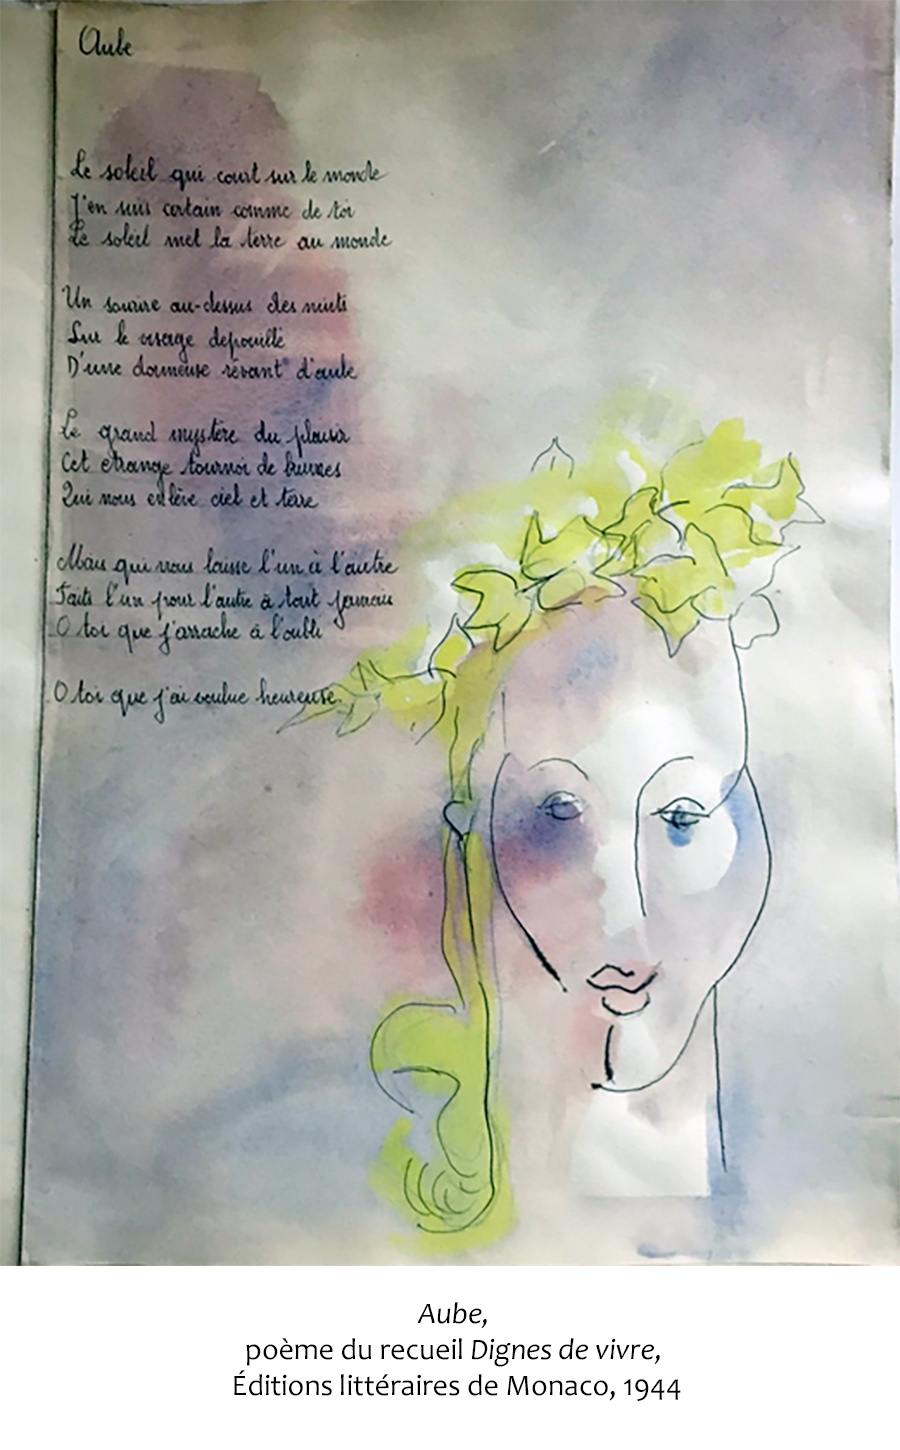 Aube
Le soleil qui court sur le monde
J'en suis certain comme de toi
Le soleil met la terre au monde
Un sourire au-dessus des nuits
Sur le visage depouillé
D'une dormeuse rêvant d'aube
Le grand mystère du plaisir
Cet etrange tournoi de brumes
Qui nous enlève ciel et terre
Mais qui nous laisse l'un à l'autre
Faits l'un pour l'autre à tout jamais
O toi que j'arrache à l'oubli
O toi que j'ai voulue heureuse.
Aube,
poème du recueil Dignes de vivre,
Éditions littéraires de Monaco, 1944